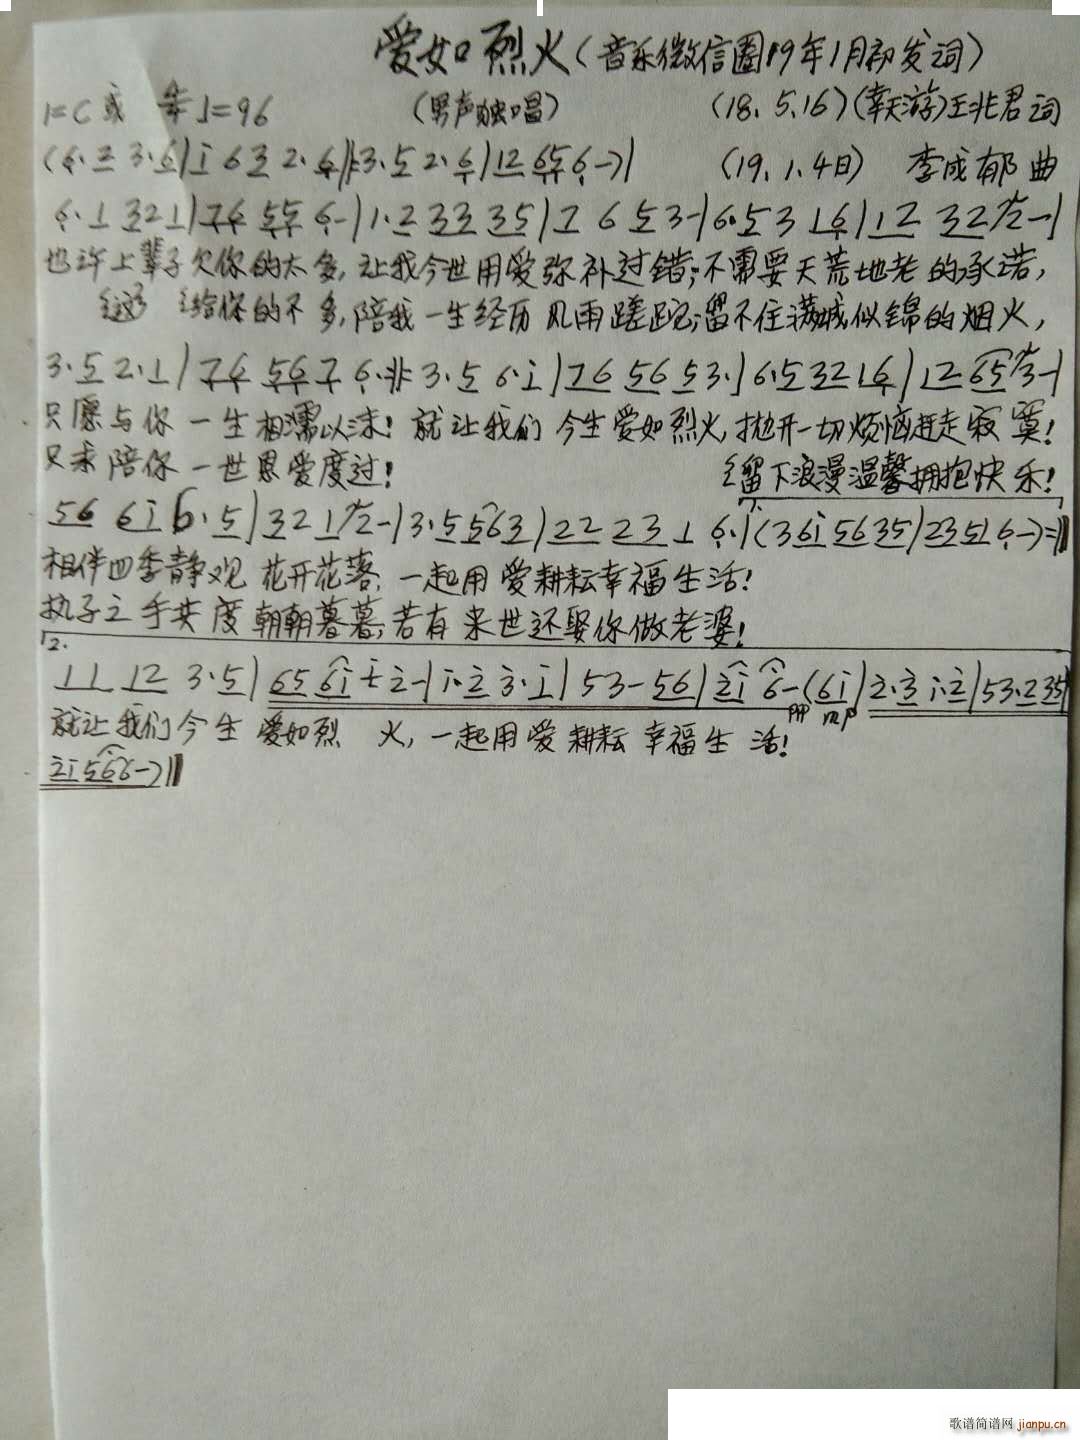 爱如烈火(音乐微信圈19年1月初发词)
1=C或 ♩=96 (男声独唱) (18.5.16)(幸天游)王兆君词
(6·2 3·6|i 6 3 2·6|3·5 2·6|12 656-)| (19.1.4日) 李成郁 曲
6·1 321|76 55 6-|1·2 33 35|7 6 5 3-|6·5 3 16|12 32 2-|
也许上辈子欠你的太多,让我今世用爱弥补过错;不需要天荒地老的承诺,
这 给你的不多,陪我一生经历风雨蹉跎;留不住满城似锦的烟火,
3·5 2·1|76 56 7 6·|3·5 6·i|76 56 53·|6·5 32 16|12 65 3-|
只愿与你一生相濡以沫!就让我们今生爱如烈火,抛开一切烦恼赶走寂寞!
只求陪你一世恩爱度过! 留下浪漫温馨拥抱快乐!
56 6i 6·5|32 1 2-|3·5 563|22 23 1 6·|(36i 56 35|235 6-)=||
相伴四季静观花开花落,一起用爱耕耘幸福生活!
执子之手共度朝朝暮暮,若有来世还娶你做老婆!
2.
11 12 3·5|65 6i 2-|i·2 3·i|53-56|2i 6-(6i|2·3 i·2|53·235|
就让我们今生爱如烈火,一起用爱耕耘幸福生活!
2i 566-)||
歌谱简谱网 jianpu.cn